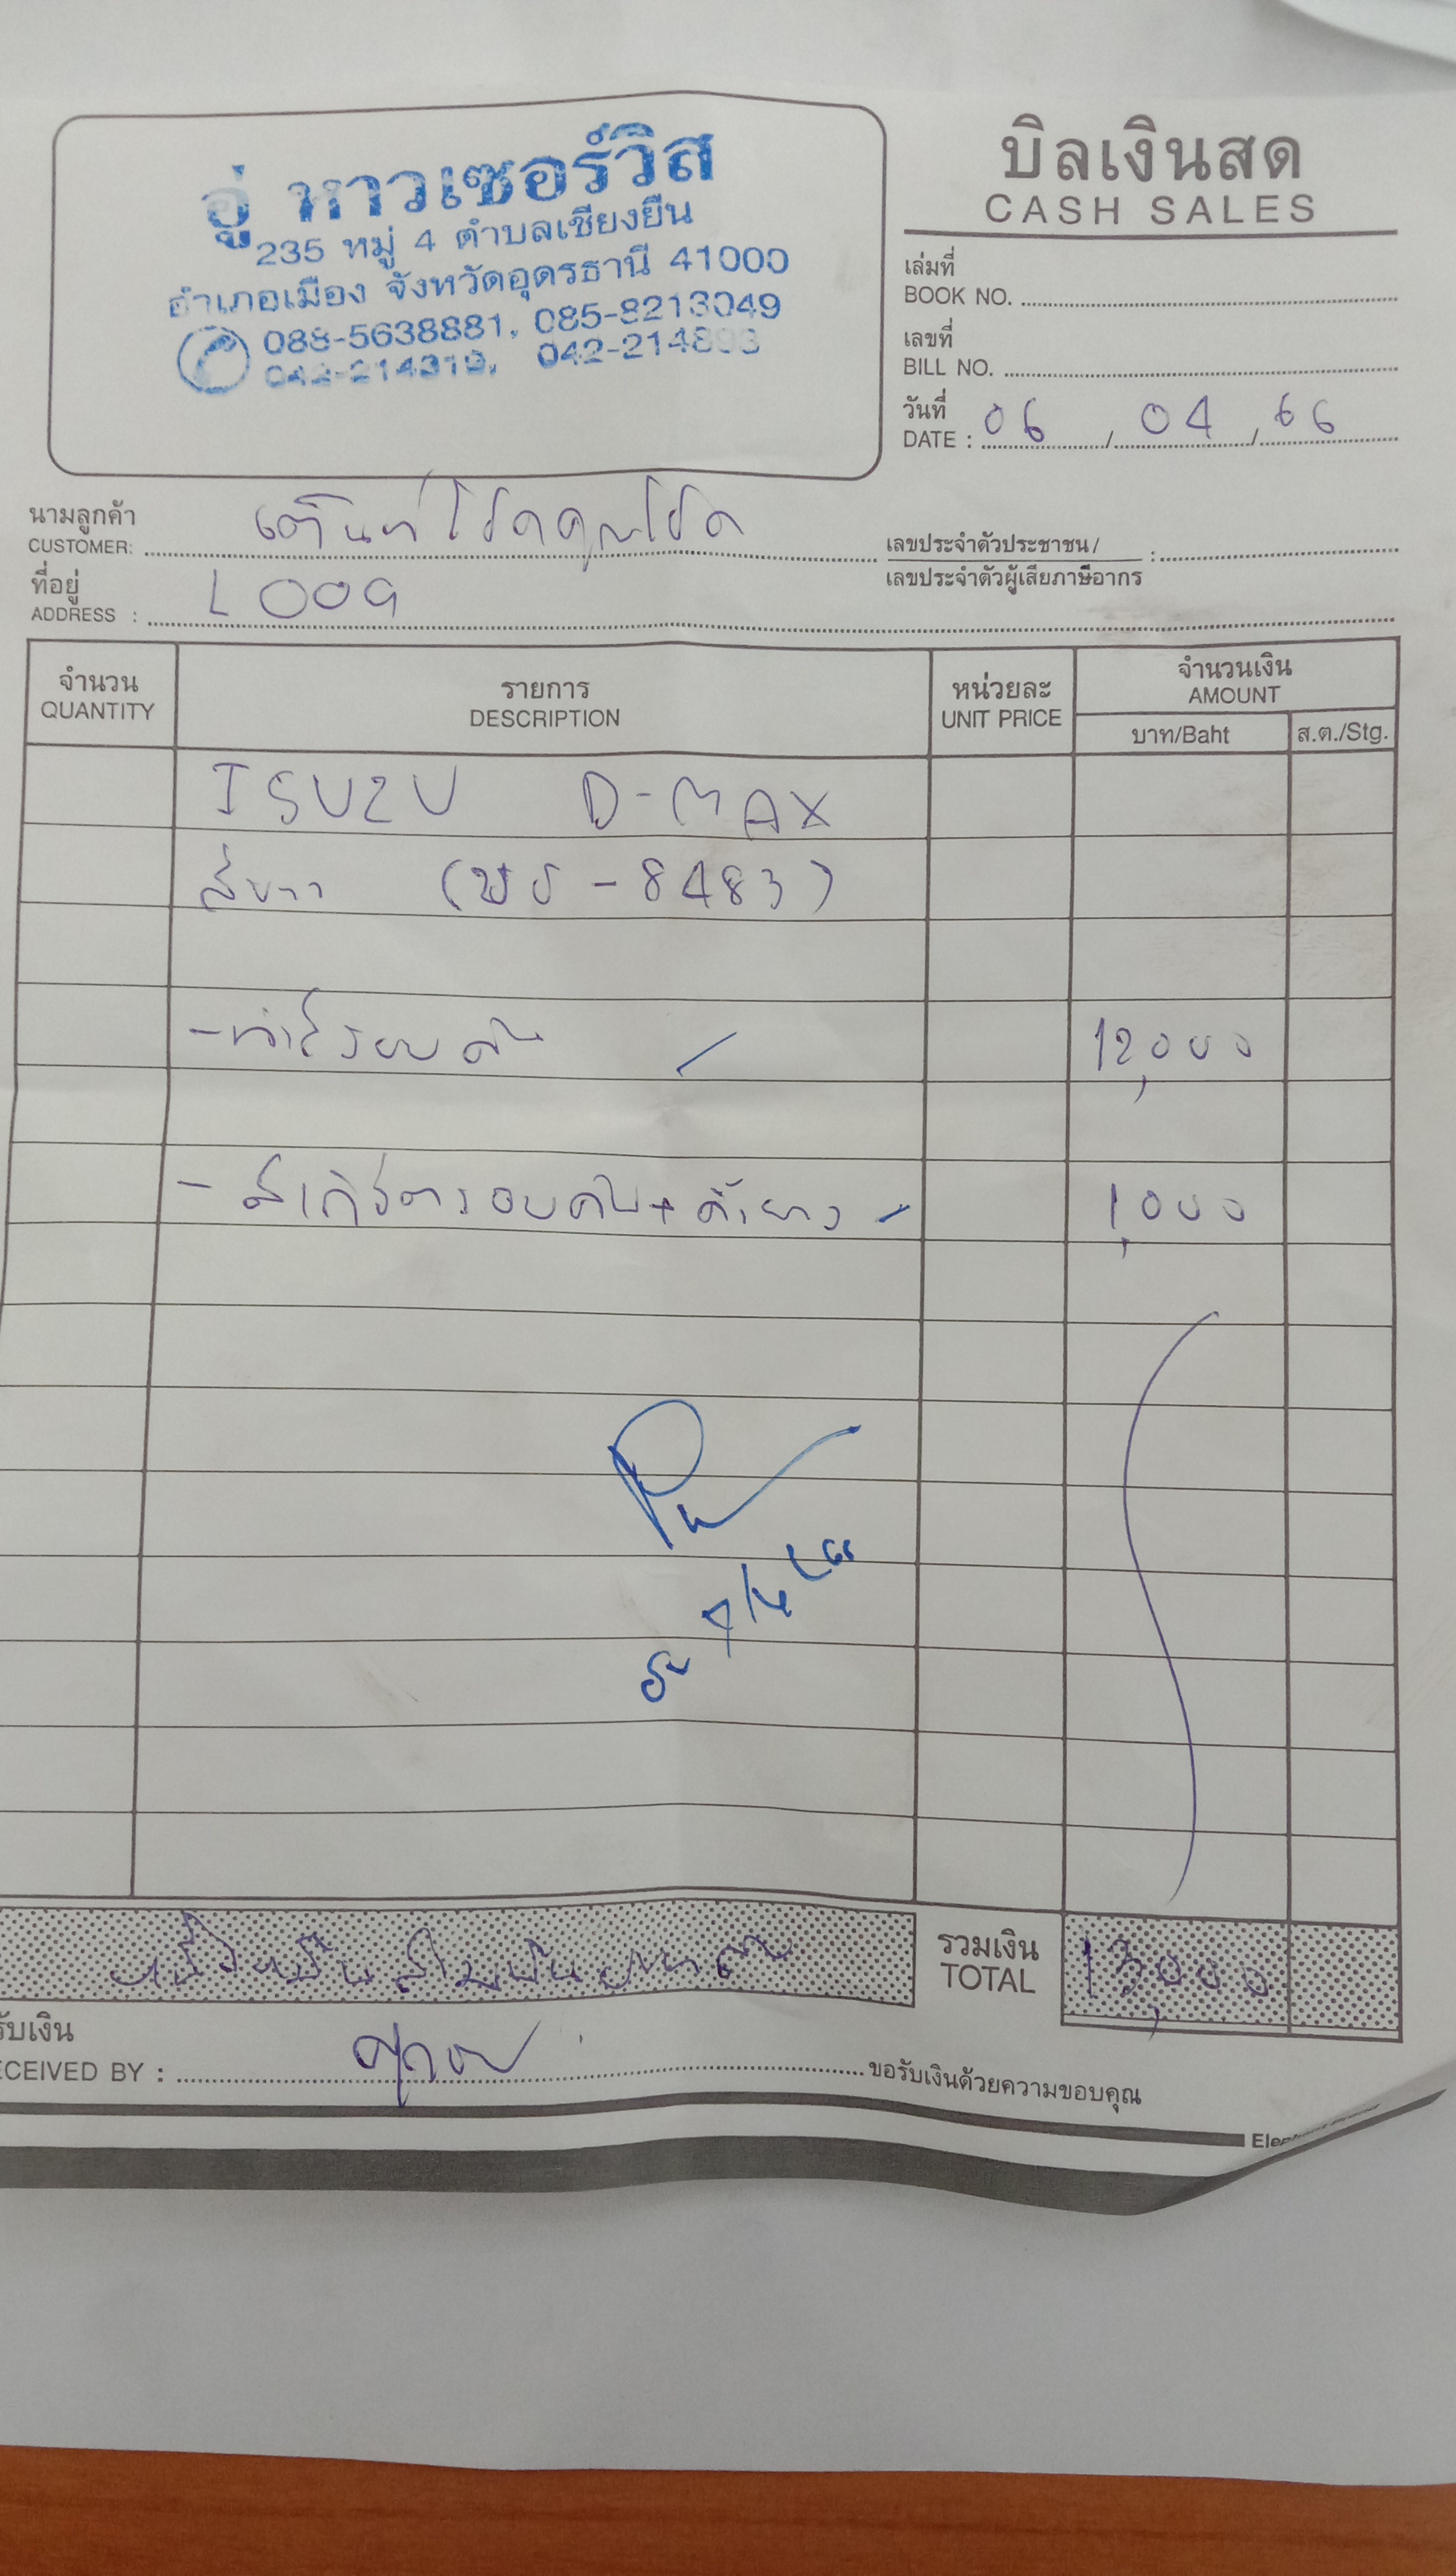 อู่ หาวเซอร์วิส
235 หมู่ 4 ตำบลเชียงยืน
อำเภอเมือง จังหวัดอุดรธานี 41000
088-5638881, 085-8213049
042-214319, 042-214893
บิลเงินสด
CASH SALES
เล่มที่
BOOK NO.
เลขที่
BILL NO.
วันที่
DATE : 06 / 04 / 66
นามลูกค้า
CUSTOMER: เต็นท์โชคคูณโชค
เลขประจำตัวประชาชน/ :
เลขประจำตัวผู้เสียภาษีอากร
ที่อยู่
ADDRESS : L009
จำนวน
QUANTITY
รายการ
DESCRIPTION
หน่วยละ
UNIT PRICE
จำนวนเงิน
AMOUNT
บาท/Baht
ส.ต./Stg.
ISUZU D-MAX
สีขาว (ขร-8483)
-ทำสีรอบคัน 12,000
-สเกิร์ตรอบคัน+คิ้วยาง 1,000
หนึ่งหมื่นสามพันบาทถ้วน
รวมเงิน
TOTAL 13,000
รับเงิน
ECEIVED BY :
ขอรับเงินด้วยความขอบคุณ